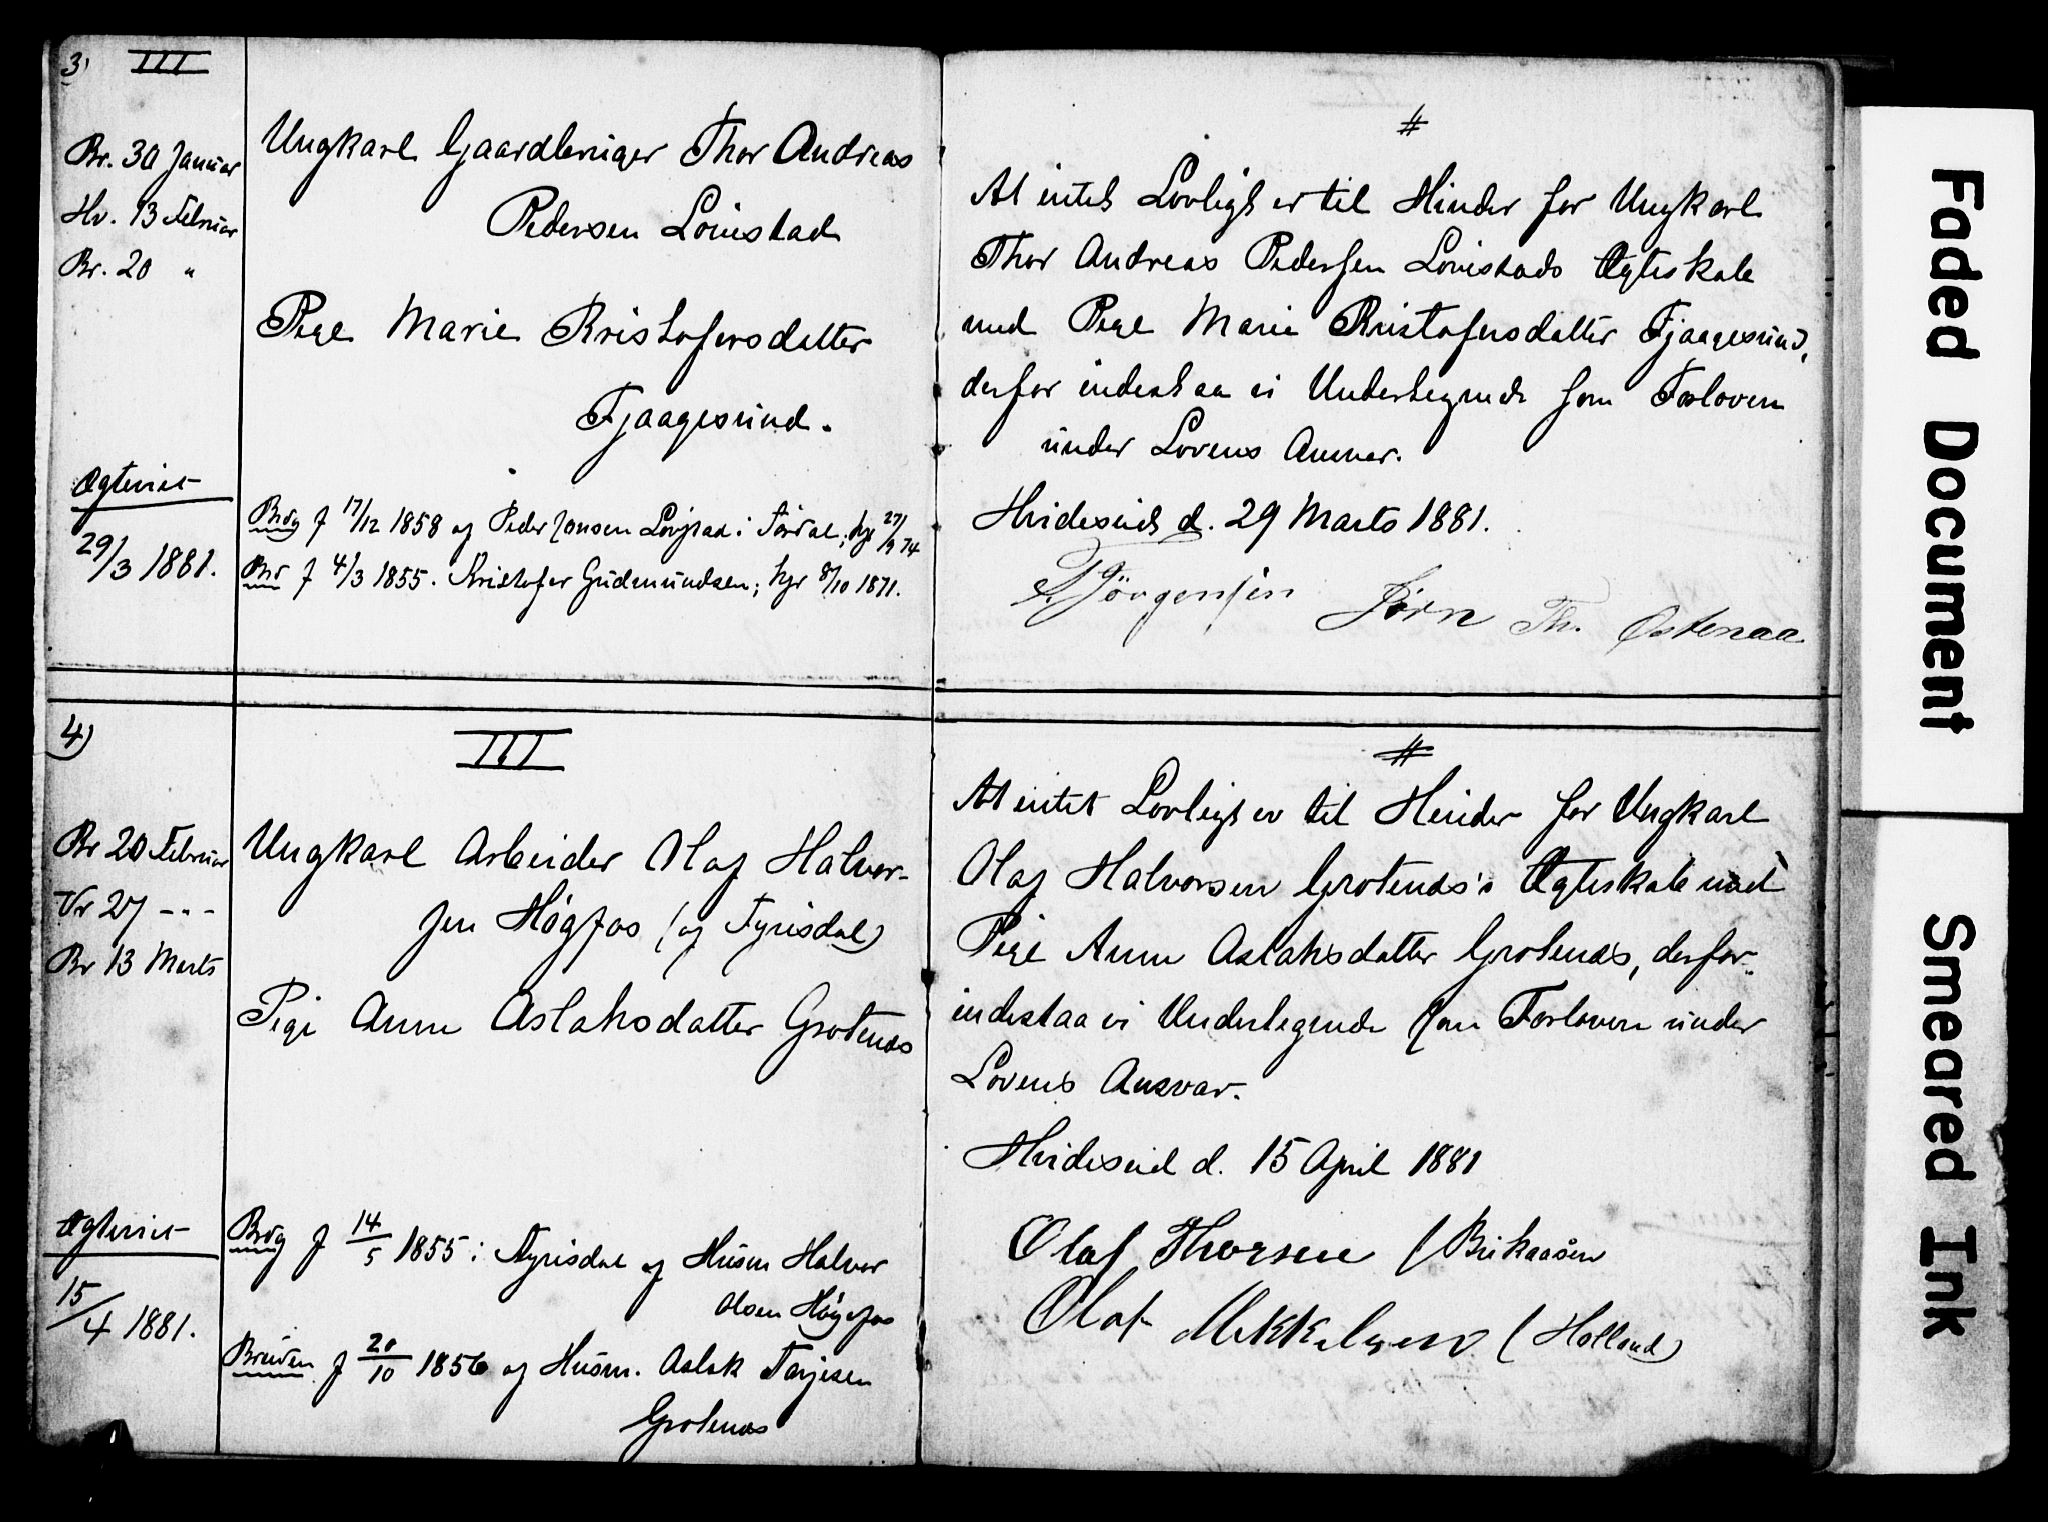 3)
III
Br. 30 Januar
Hv. 13 Februar
Br. 20 "
Ungkarl Gaardbruger Thor Andreas
Pedersen Lonistad
Pige Marie Kristofersdatter
Fjaagesund.
Ægteviet
29/3 1881.
Brdg f 17/12 1858 af Peder Jonsen i Tørdal; 27/9 74
Brd f 4/3 1855. Kristofer Gudmundsen; 8/10 1871.
#
At intet Lovligt er til Hinder for Ungkarl
Thor Andreas Pedersen Lonistads Ægteskab
med Pige Marie Kristofersdatter Fjaagesund,
derfor indestaa vi Undertegnede som Forlovere
under Lovens Ansvar.
Hvideseid d. 29 Marts 1881.
Jörgensen Jörn Th. Østenaa
4)
III
Br 20 Februar
27 - " -
Br 13 Marts
Ungkarl Arbeider Olaf Halvor-
sen Høgfos (af Tyrisdal)
Pige Anne Aslaksdatter Grotenæs
Ægteviet
15/4 1881.
Brdg f 14/5 1855 i Tyrisdal af Husm Halvor
Olsen Høgefos
Bruden f 20/10 1856 af Husm. Aslak Tarjesen
Grotenæs
#
At intet Lovligt er til Hinder for Ungkarl
Olaf Halvorsen Grotenæs's Ægteskab med
Pige Anne Aslaksdatter Grotenæs, derfor
indestaa vi Undertegnede som Forlovere under
Lovens Ansvar.
Hvideseid d. 15 April 1881
Olaf Thorsen (Birkaasen
Olaf Mikkelsen (Holland)
Faded Document
Smeared Ink